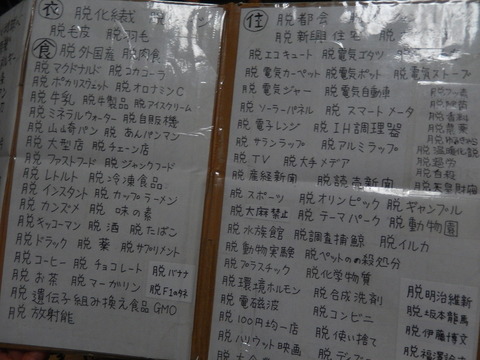 衣 脱化繊 脱
脱毛皮 脱羽毛
食 脱外国産 脱肉食
脱マクドナルド 脱コカコーラ
脱ポカリスウェット 脱オロナミンC
脱牛乳 脱乳製品 脱アイスクリーム
脱ミネラルウォーター 脱自販機
脱山崎パン 脱あんパンマン
脱大型店 脱チェーン店
脱ファストフード 脱ジャンクフード
脱レトルト 脱冷凍食品
脱インスタント 脱カップラーメン
脱カンズメ 脱味の素
脱キッコーマン 脱酒 脱たばこ
脱ドラック 脱薬 脱サプリメント
脱コーヒー 脱チョコレート 脱バナナ
脱お茶 脱マーガリン 脱F1のタネ
脱遺伝子組み換え食品GMO
脱放射能
住 脱都会
脱新興住宅
脱エコキュート 脱電気コタツ
脱電気カーペット 脱電気ポット 脱電気ストーブ
脱電気ジャー 脱電気自動車
脱ソーラーパネル 脱スマートメータ
脱電子レンジ 脱IH調理器
脱サランラップ 脱アルミラップ
脱TV 脱大手メディア
脱産経新聞 脱読売新聞
脱フッ素
脱香料
脱温暖化説
脱自殺
脱スポーツ 脱オリンピック 脱ギャンブル
脱大麻禁止 脱テーマパーク 脱動物園
脱水族館 脱調査捕鯨 脱イルカ
脱動物実験 脱ペットの殺処分
脱プラスチック 脱化学物質
脱環境ホルモン 脱合成洗剤
脱電磁波 脱コンビニ
脱100円均一店 脱使い捨て
脱ハリウッド映画
脱明治維新
脱坂本龍馬
脱伊藤博文